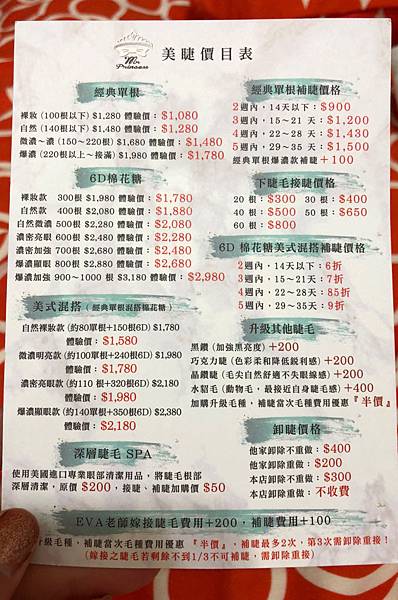 Mm
Princess
美睫價目表
經典單根
裸妝 (100根以下) $1,280 體驗價：$1,080
自然 (140根以下) $1,480 體驗價：$1,280
微濃～濃 (150～220根) $1,680 體驗價：$1,480
爆濃 (220根以上～接滿) $1,980 體驗價：$1,780
6D棉花糖
裸妝款 300根 $1,980 體驗價：$1,780
自然款 400根 $2,080 體驗價：$1,880
自然微濃 500根 $2,280 體驗價：$2,080
濃密亮眼 600根 $2,480 體驗價：$2,280
濃密加強 700根 $2,680 體驗價：$2,480
爆濃顯眼 800根 $2,880 體驗價：$2,680
爆濃加強 900～1000 根 $3,180 體驗價：$2,980
美式混搭 (經典單根混搭棉花糖)
自然裸妝款 (約80單根+150根6D) $1,780
體驗價：$1,580
微濃明亮款 (約100單根+240根6D) $1,980
體驗價：$1,780
濃密亮眼款 (約110 根+320根6D) $2,180
體驗價：$1,980
爆濃顯眼款 (約140單根+350根6D) $2,380
體驗價：$2,180
深層睫毛 SPA
使用美國進口專業眼部清潔用品，將睫毛根部
深層清潔，原價 $200，接睫、補睫加購價 $50
經典單根補睫價格
2週內，14天以下：$900
3週內，15～21 天：$1,200
4週內，22～28 天：$1,430
5週內，29～35 天：$1,500
經典單根爆濃款補睫+100
下睫毛接睫價格
20 根：$300 30 根：$400
40 根：$500 50 根：$650
60 根：$800
6D 棉花糖美式混搭補睫價格
2週內，14天以下：6折
3週內，15～21天：7折
4週內，22～28天：85折
5週內，29～35天：9折
升級其他睫毛
黑鑽 (加強黑亮度) +200
巧克力睫 (色彩柔和降低銳利感) +200
晶鑽睫 (毛尖自然舒適不失眼線感) +200
水貂毛 (動物毛，最接近自身睫毛感) +400
加購升級毛種，補睫當次毛種費用優惠『半價』
卸睫價格
他家卸除不重做：$400
他家卸除重做：$200
本店卸除不重做：$300
本店卸除重做：不收費
EVA老師嫁接睫毛費用+200，補睫費用+100
升級毛種，補睫當次毛種費用優惠『半價』，補睫最多2次，第3次需卸除重接！
(嫁接之睫毛若剩餘不到1/3不可補睫，需卸除重接)